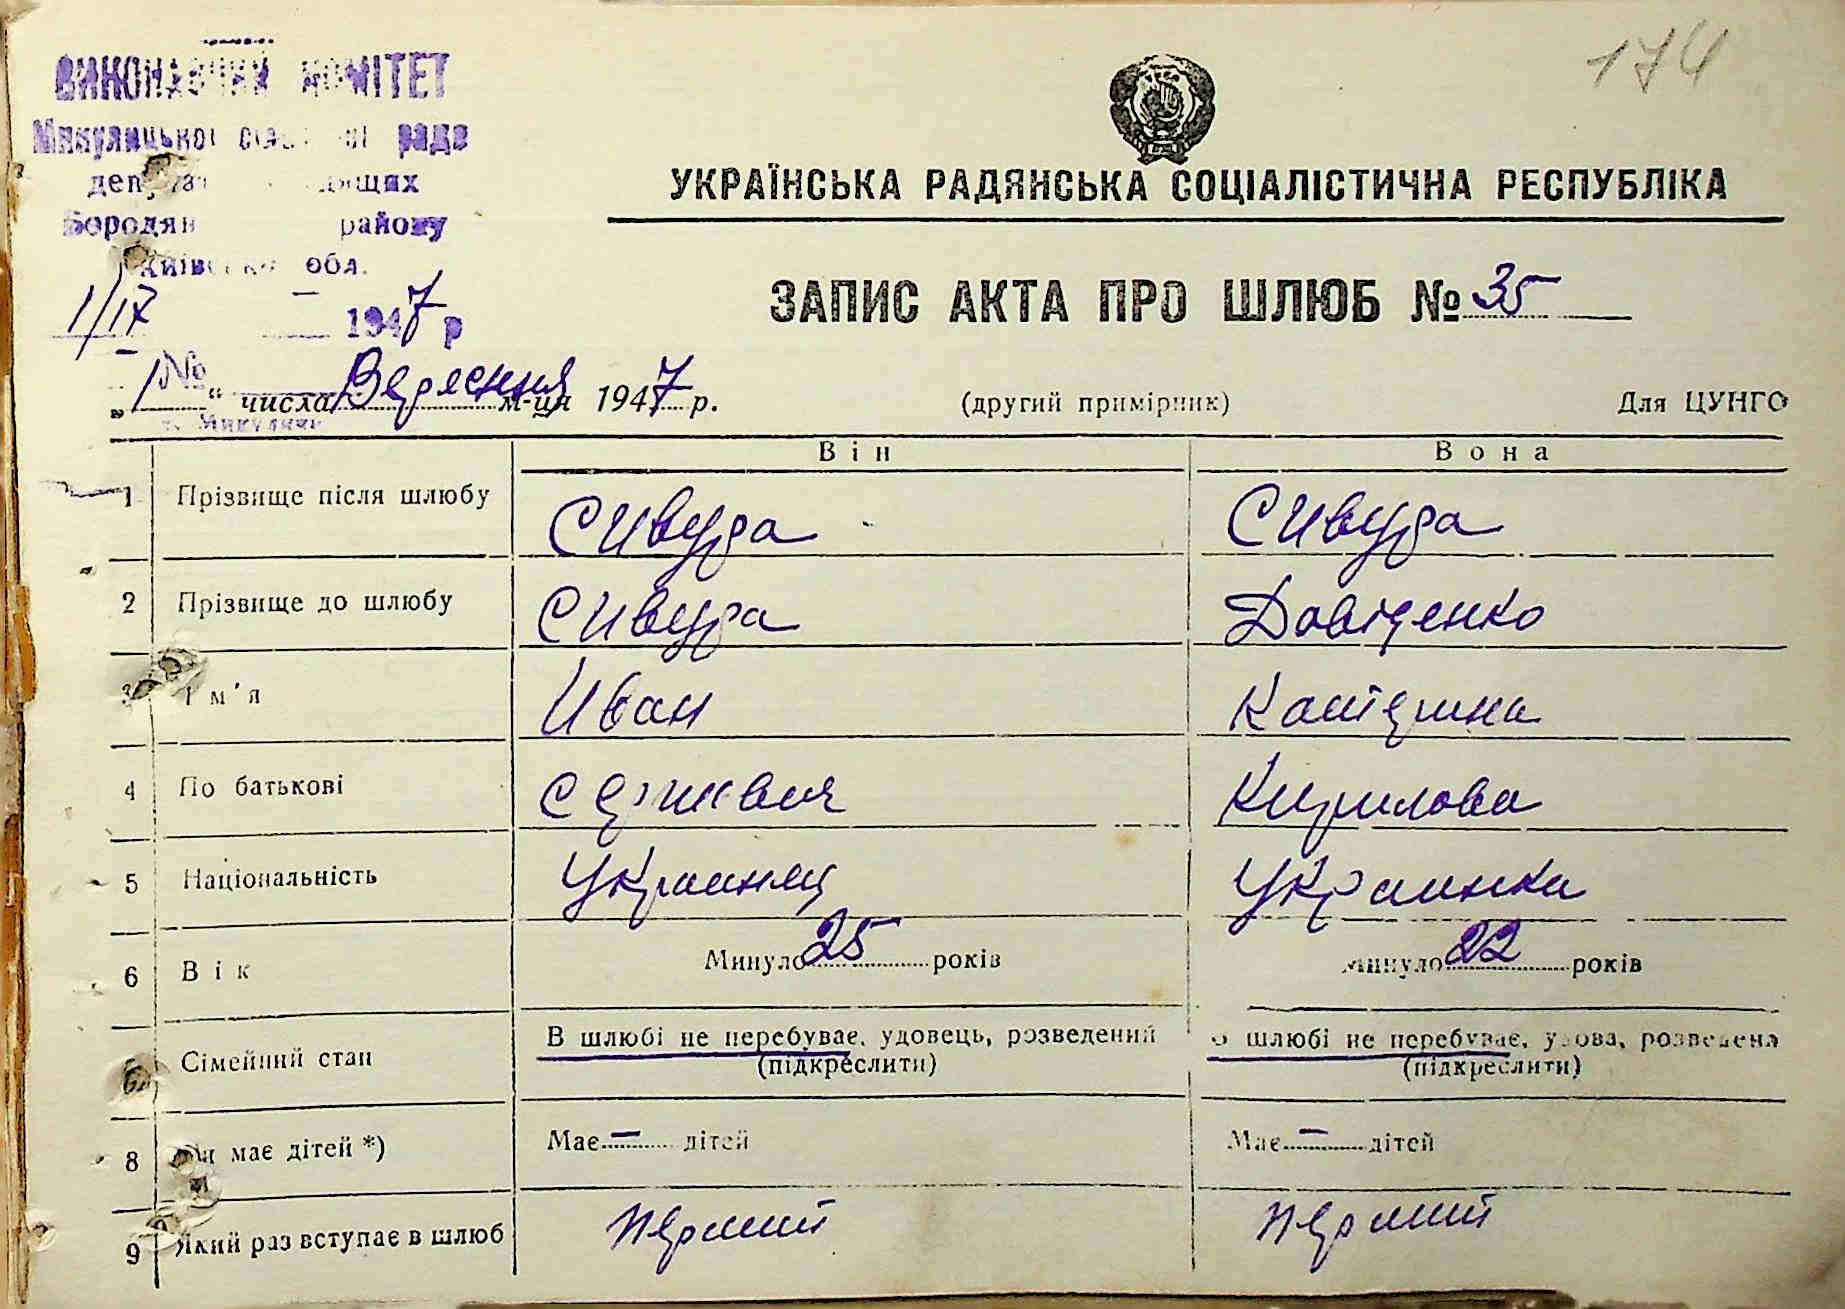 174
ВИКОНАВЧИЙ КОМІТЕТ
Микулицької сільської ради
депутатів трудящих
Бородян району
Київської обл.
1/17 1947 р
№
с. Микуличі
УКРАЇНСЬКА РАДЯНСЬКА СОЦІАЛІСТИЧНА РЕСПУБЛІКА
ЗАПИС АКТА ПРО ШЛЮБ № 35
„1“ числа Вересння м-ця 1947 р. (другий примірник) Для ЦУНГО
Він Вона
1 Прізвище після шлюбу Сивуда Сивуда
2 Прізвище до шлюбу Сивуда Довіденко
3 Ім'я Иван Катерина
4 По батькові Кирилова
5 Національність Украинец Украинка
6 Вік Минуло 25 років Минуло 22 років
Сімейний стан В шлюбі не перебуває, удовець, розведений В шлюбі не перебуває, удова, розведена
(підкреслити) (підкреслити)
8 Чи має дітей *) Має – дітей Має – дітей
9 Який раз вступає в шлюб перший перший